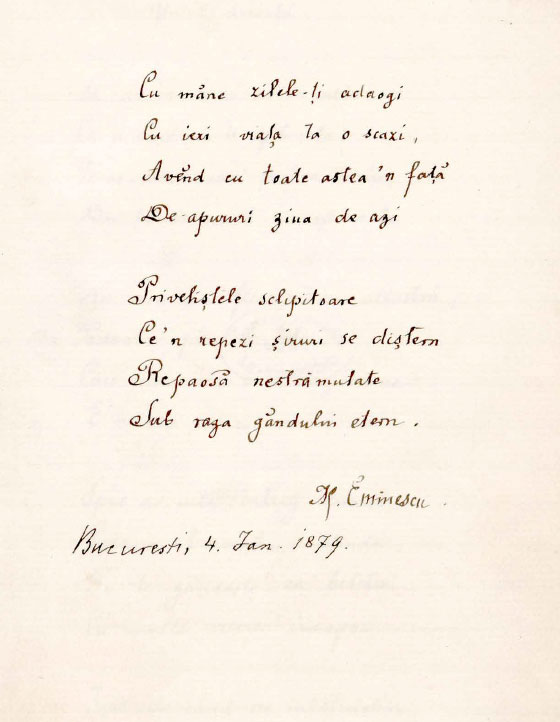 Cu mâne zilele-ți adaogi
Cu ieri viața ta o scazi,
Avênd cu toate astea'n față
De-apururi ziua de azi
Priveliștele sclipitoare
Ce'n repezi șiruri se diștern
Repaosă nestrămutate
Sub raza gândului etern.
M. Eminescu.
Bucuresti, 4. Jan. 1879.